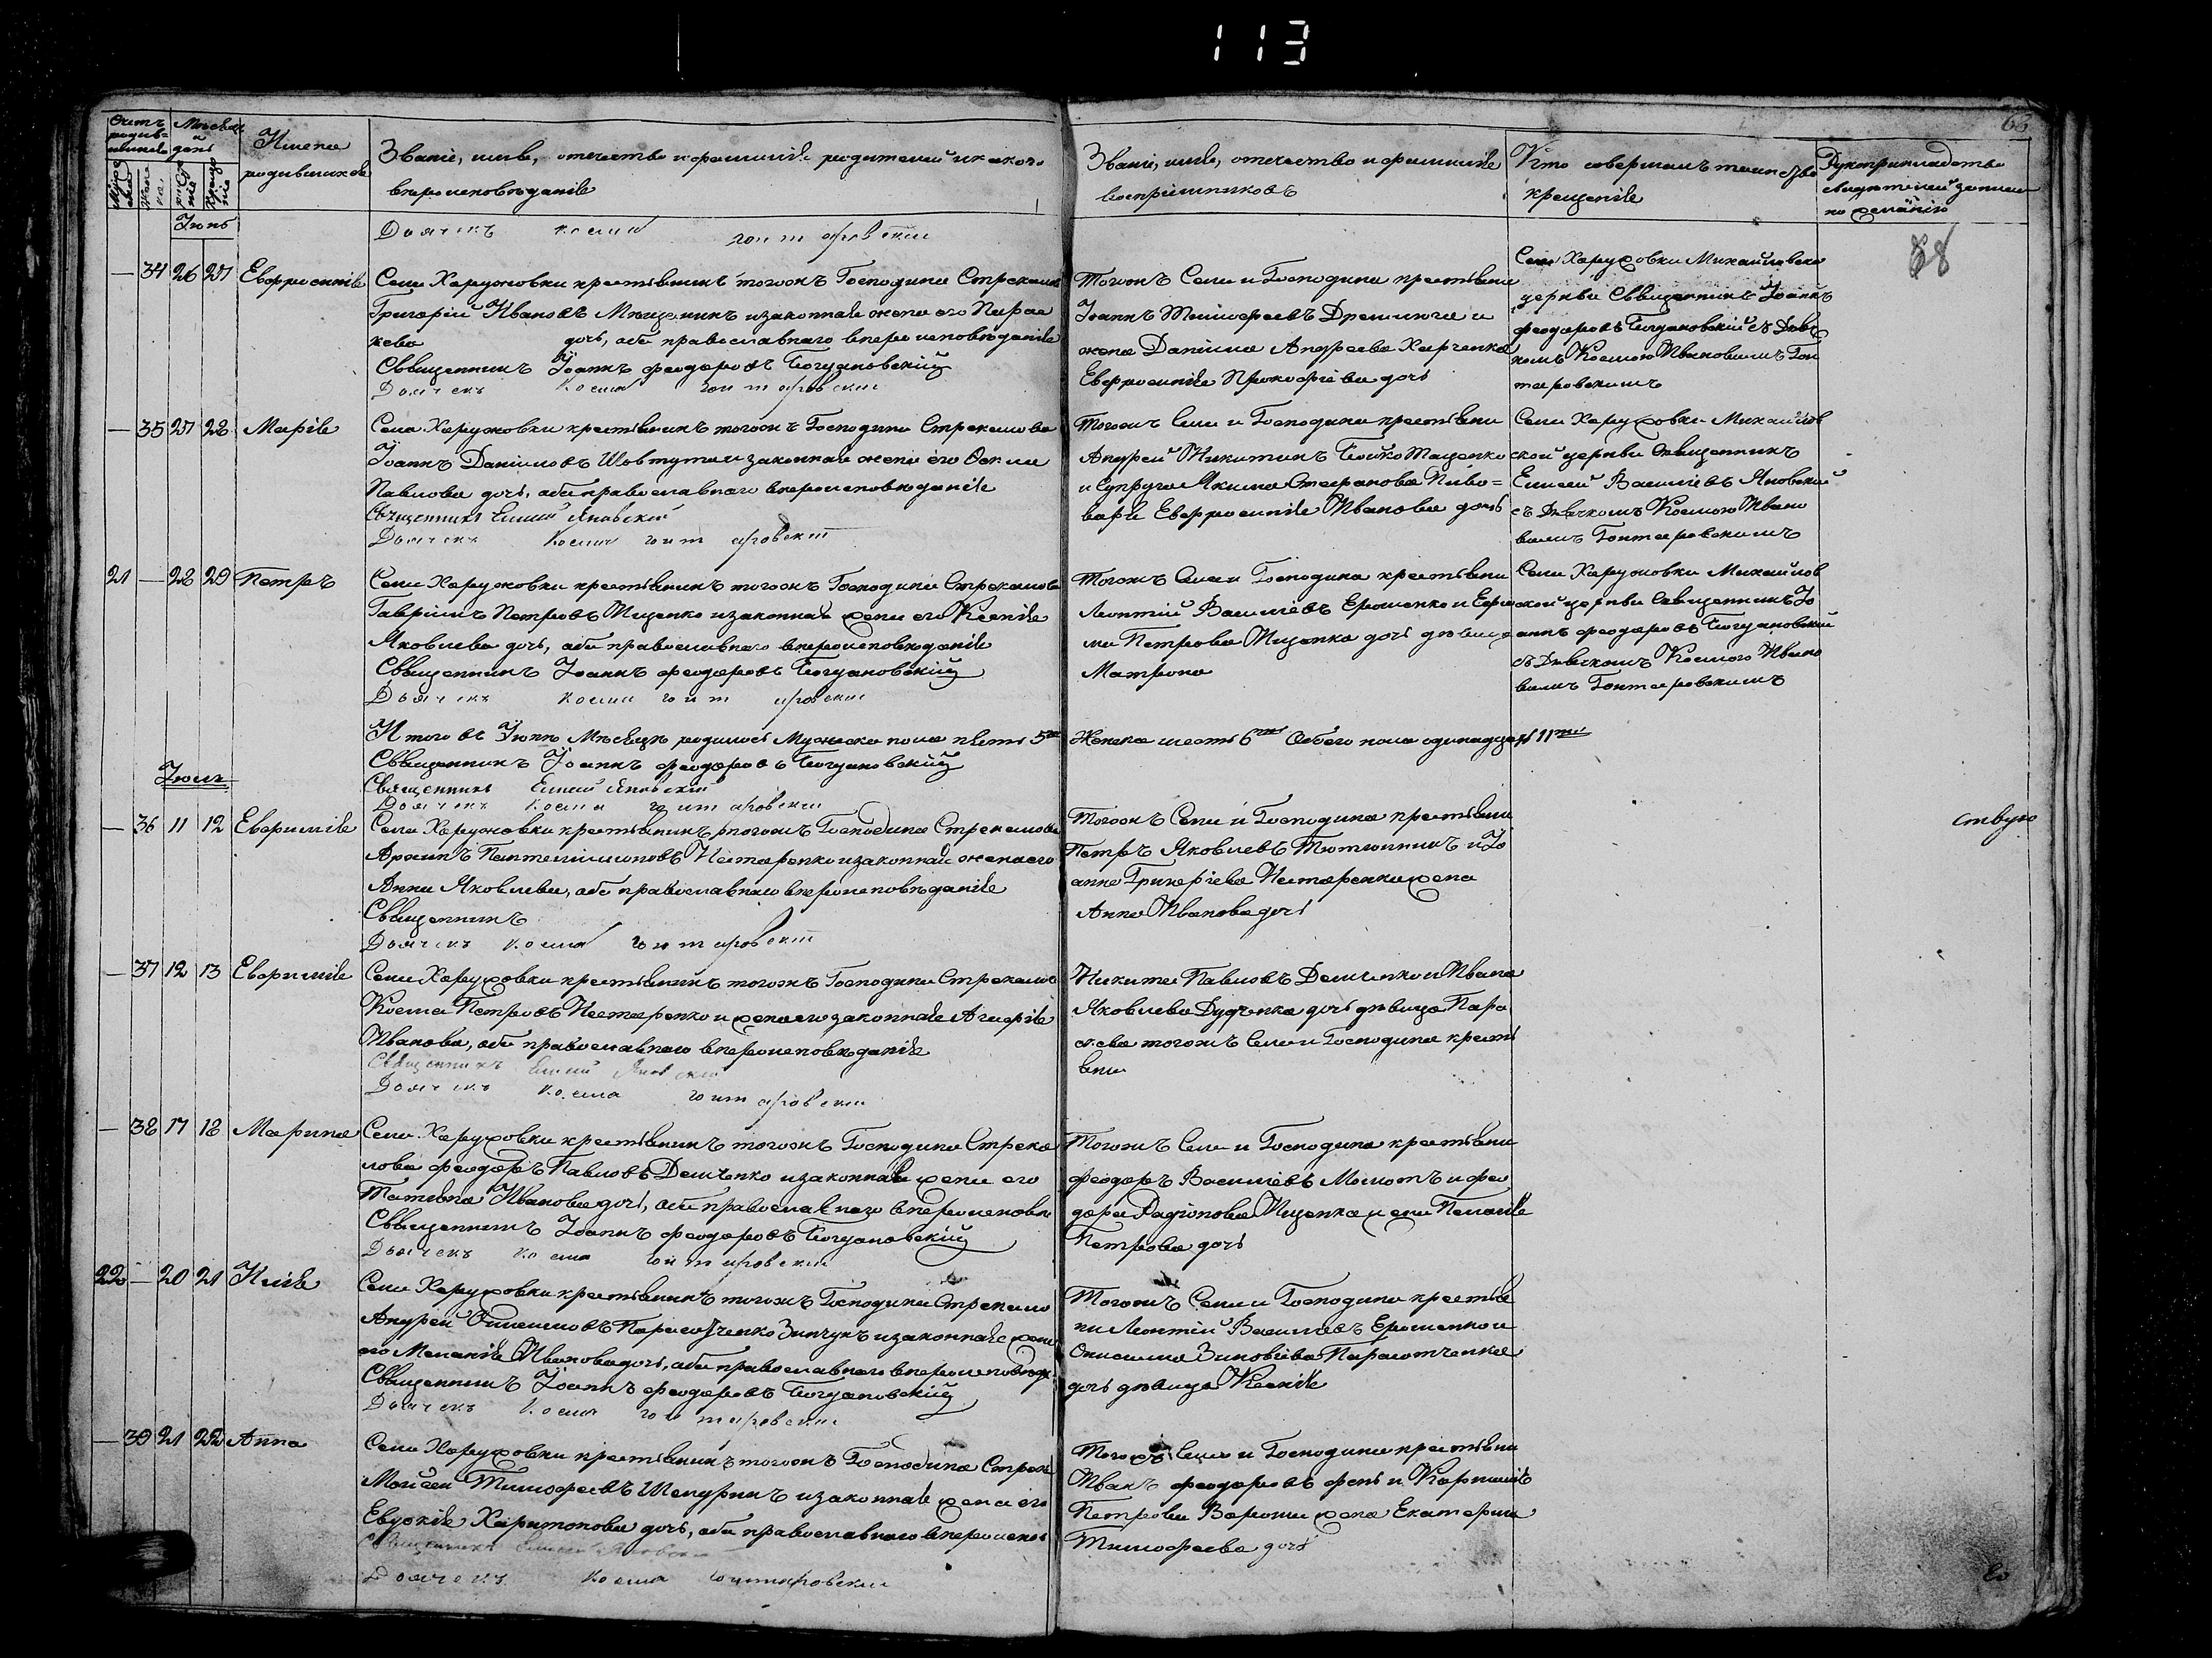 113
66
88
Счетъ родив-шихся
Мѣсяцъ и день
Имена родившихся
Званіе, имя, отечество и фамилія родителей и какого
вѣроисповѣданія
Званіе, имя, отечество и фамилія
воспріемниковъ
Кто совершалъ таинство
крещенія
Рукоприкладство
свидѣтелей записи
по желанію
Іюнь
Дьячекъ Косма Гонтаровскій
— 34 26 27 Евфросинія
Села Харужовки крестьянинъ тогожъ Господина Стрекалова
Григорій Ивановъ Мищенинъ и законная жена его Парас
кева дочь, оба православнаго вѣроисповѣданія
Священникъ Іоаннъ Феодоровъ Богдановскій
Дьячекъ Косма Гонтаровскій
Тогожъ Села и Господина крестьяни
Іоаннъ Тимофеевъ Дремлюга и
жена Даниила Андреева Харченка
Евфросинія Прокофіева дочь
Села Харужовки Михайловской
церкви Священникъ Іоаннъ
Феодоровъ Богдановскій съ Дьяч
комъ Космою Ивановымъ Гон
таровскимъ
— 35 27 28 Марія
Села Харужовки крестьянинъ тогожъ Господина Стрекалова
Іоаннъ Даниловъ Шовтута и законная жена его
Павлова дочь, оба православнаго вѣроисповѣданія
Священникъ Елисей Яновскій
Дьячекъ Косма Гонтаровскій
Тогожъ Села и Господина крестьяни
Андрей Никитинъ
и Супруга Якима Стефанова Пиво=
вара Евфросинія Иванова дочь
Села Харужовки Михайлов
ской церкви Священникъ
Елисей Васильевъ Яновскій
съ Дьячкомъ Космою Ивано
вымъ Гонтаровскимъ
21 — 28 29 Петръ
Села Харужовки крестьянинъ тогожъ Господина Стрекалова
Гавріилъ Петровъ Мищенко и законная жена его Ксенія
Яковлева дочь, оба православнаго вѣроисповѣданія
Священникъ Іоаннъ Феодоровъ Богдановскій
Дьячекъ Косма Гонтаровскій
Тогожъ Села и Господина крестьяни
Леонтій Васильевъ Ерошенко и Ефре
ма Петрова Мищенка дочь дѣвица
Матрона
Села Харужовки Михайлов
ской церкви Священникъ Іо
аннъ Феодоровъ Богдановскій
съ Дьячкомъ Космою Ивано
вымъ Гонтаровскимъ
Итого въ Іюнѣ Мѣсяцѣ родилось Мужеска пола пять 5 Женска шесть 6 Обоего пола одинадцать 11
Священникъ Іоаннъ Феодоровъ Богдановскій
Іюль
Священникъ Елисей Яновскій
Дьячекъ Косма Гонтаровскій
— 36 11 12 Евфимія
Села Харужовки крестьянинъ тогожъ Господина Стрекалова
Архипъ Пантелимоновъ Нестеренко и законная жена его
Анна Яковлева, оба православнаго вѣроисповѣданія
Священникъ
Дьячекъ Косма Гонтаровскій
Тогожъ Села и Господина крестьяни
Петръ Яковлевъ Тютюнникъ и Іо
анна Григоріева Нестеренка жена
Анна Иванова дочь
ствую
— 37 12 13 Евфимія
Села Харужовки крестьянинъ тогожъ Господина Стрекалова
Косма Петровъ Нестеренко и жена его законная Агафія
Иванова, оба православнаго вѣроисповѣданія
Священникъ Елисей Яновскій
Дьячекъ Косма Гонтаровскій
Никита Павловъ Демченко и Ивана
Яковлева Дудченка дочь дѣвица Пара
скева тогожъ Села и Господина кресть
яни
— 38 17 18 Марина
Села Харужовки крестьянинъ тогожъ Господина Стрека
лова Феодоръ Павловъ Демченко и законная жена его
Татьяна Иванова дочь, оба православнаго вѣроисповѣ
Священникъ Іоаннъ Феодоровъ Богдановскій
Дьячекъ Косма Гонтаровскій
Тогожъ Села и Господина крестьяни
Феодоръ Васильевъ Молотъ и Фео
дора Радіонова Мищенка жена Пелагія
Петрова дочь
22 — 20 21 Илія
Села Харужовки крестьянинъ тогожъ Господина Стрекало
Андрей Онисимовъ Парасотченко Зинчукъ и законная жена
его Меланія Иванова дочь, оба православнаго вѣроисповѣд
Священникъ Іоаннъ Феодоровъ Богдановскій
Дьячекъ Косма Гонтаровскій
Тогожъ Села и Господина крестья
ни Леонтій Васильевъ Ерошенко и
Онисима Зиновіева Парасотченка
дочь дѣвица Ксенія
— 39 21 22 Анна
Села Харужовки крестьянинъ тогожъ Господина Стрек
Мойсей Тимофеевъ Шепуринъ и законная жена его
Евдокія Харитонова дочь, оба православнаго вѣроиспов
Священникъ Елисей Яновскій
Дьячекъ Косма Гонтаровскій
Тогожъ Села и Господина крестьяни
Иванъ Феодоровъ Фень и Корнилія
Петрова Вороны жена Екатерина
Тимофеева дочь